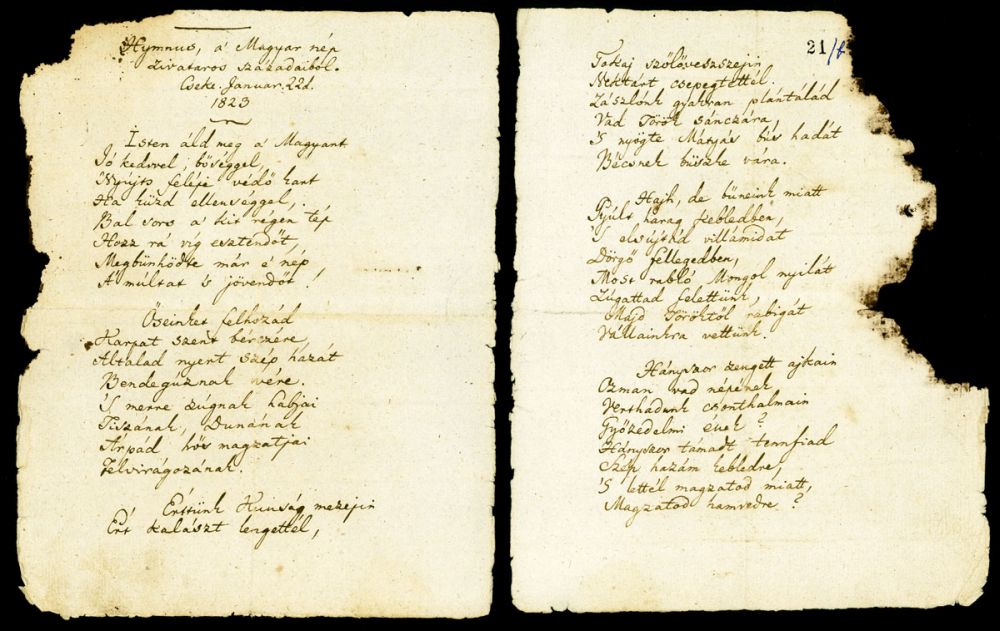 Hymnus, a' Magyar nép
zivataros századaiból.
Cseke. Januar. 22d.
1823
Isten áld meg a' Magyart
Jó kedvvel, bőséggel,
Nyújts feléje védő kart
Ha küzd ellenséggel,
Bal sors a' kit régen tép
Hozz rá víg esztendőt,
Megbünhödte már e' nép
A' múltat 's jövendőt!
Őseinket felhozád
Kárpát szent bérczére,
Általad nyert szép hazát
Bendegúznak vére.
'S merre zúgnak habjai
Tiszának, Dunának
Árpád hős magzatjai
Felvirágozának.
Értünk Kunság mezejin
Ért kalászt lengettél,
21/b
Tokaj szőlővesszejin
Nektárt csepegtettél.
Zászlónk gyakran plántálád
Vad Török sánczára,
'S nyögte Mátyás bús hadát
Bécsnek büszke vára.
Hajh, de bűneink miatt
Gyúlt harag kebledben,
'S elsújtád villámidat
Dörgő fellegedben,
Most rabló Mongol nyilát
Zúgattad felettünk,
Majd Töröktől rabigát
Vállainkra vettünk.
Hányszor zengett ajkain
Ozman vad népének,
Vert hadunk csonthalmain
Győzedelmi ének?
Hányszor támadt tennfiad
Szép hazám kebledre,
'S lettél magzatod miatt,
Magzatod hamvedre?